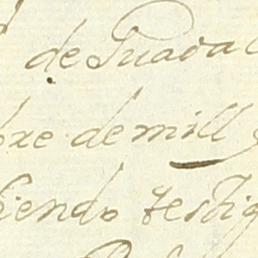 de Guadal
bre de mill y
siendo testig